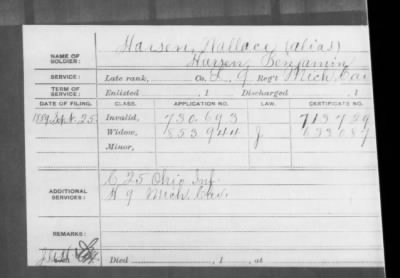 Harsen, Wallace (alias)
NAME OF SOLDIER: Harsen, Benjamin
SERVICE: Late rank, Co. L, 9 Reg't Mich. Cav
TERM OF SERVICE: Enlisted , 1 Discharged , 1
DATE OF FILING. CLASS. APPLICATION NO. LAW. CERTIFICATE NO.
1889 Sept. 25 Invalid, 730.693 713.729
Widow, 853.944 J 633.087
Minor,
ADDITIONAL SERVICES: C 25 Ohio Inf.
K 9 Mich. Cav.
REMARKS:
Died , 1 , at